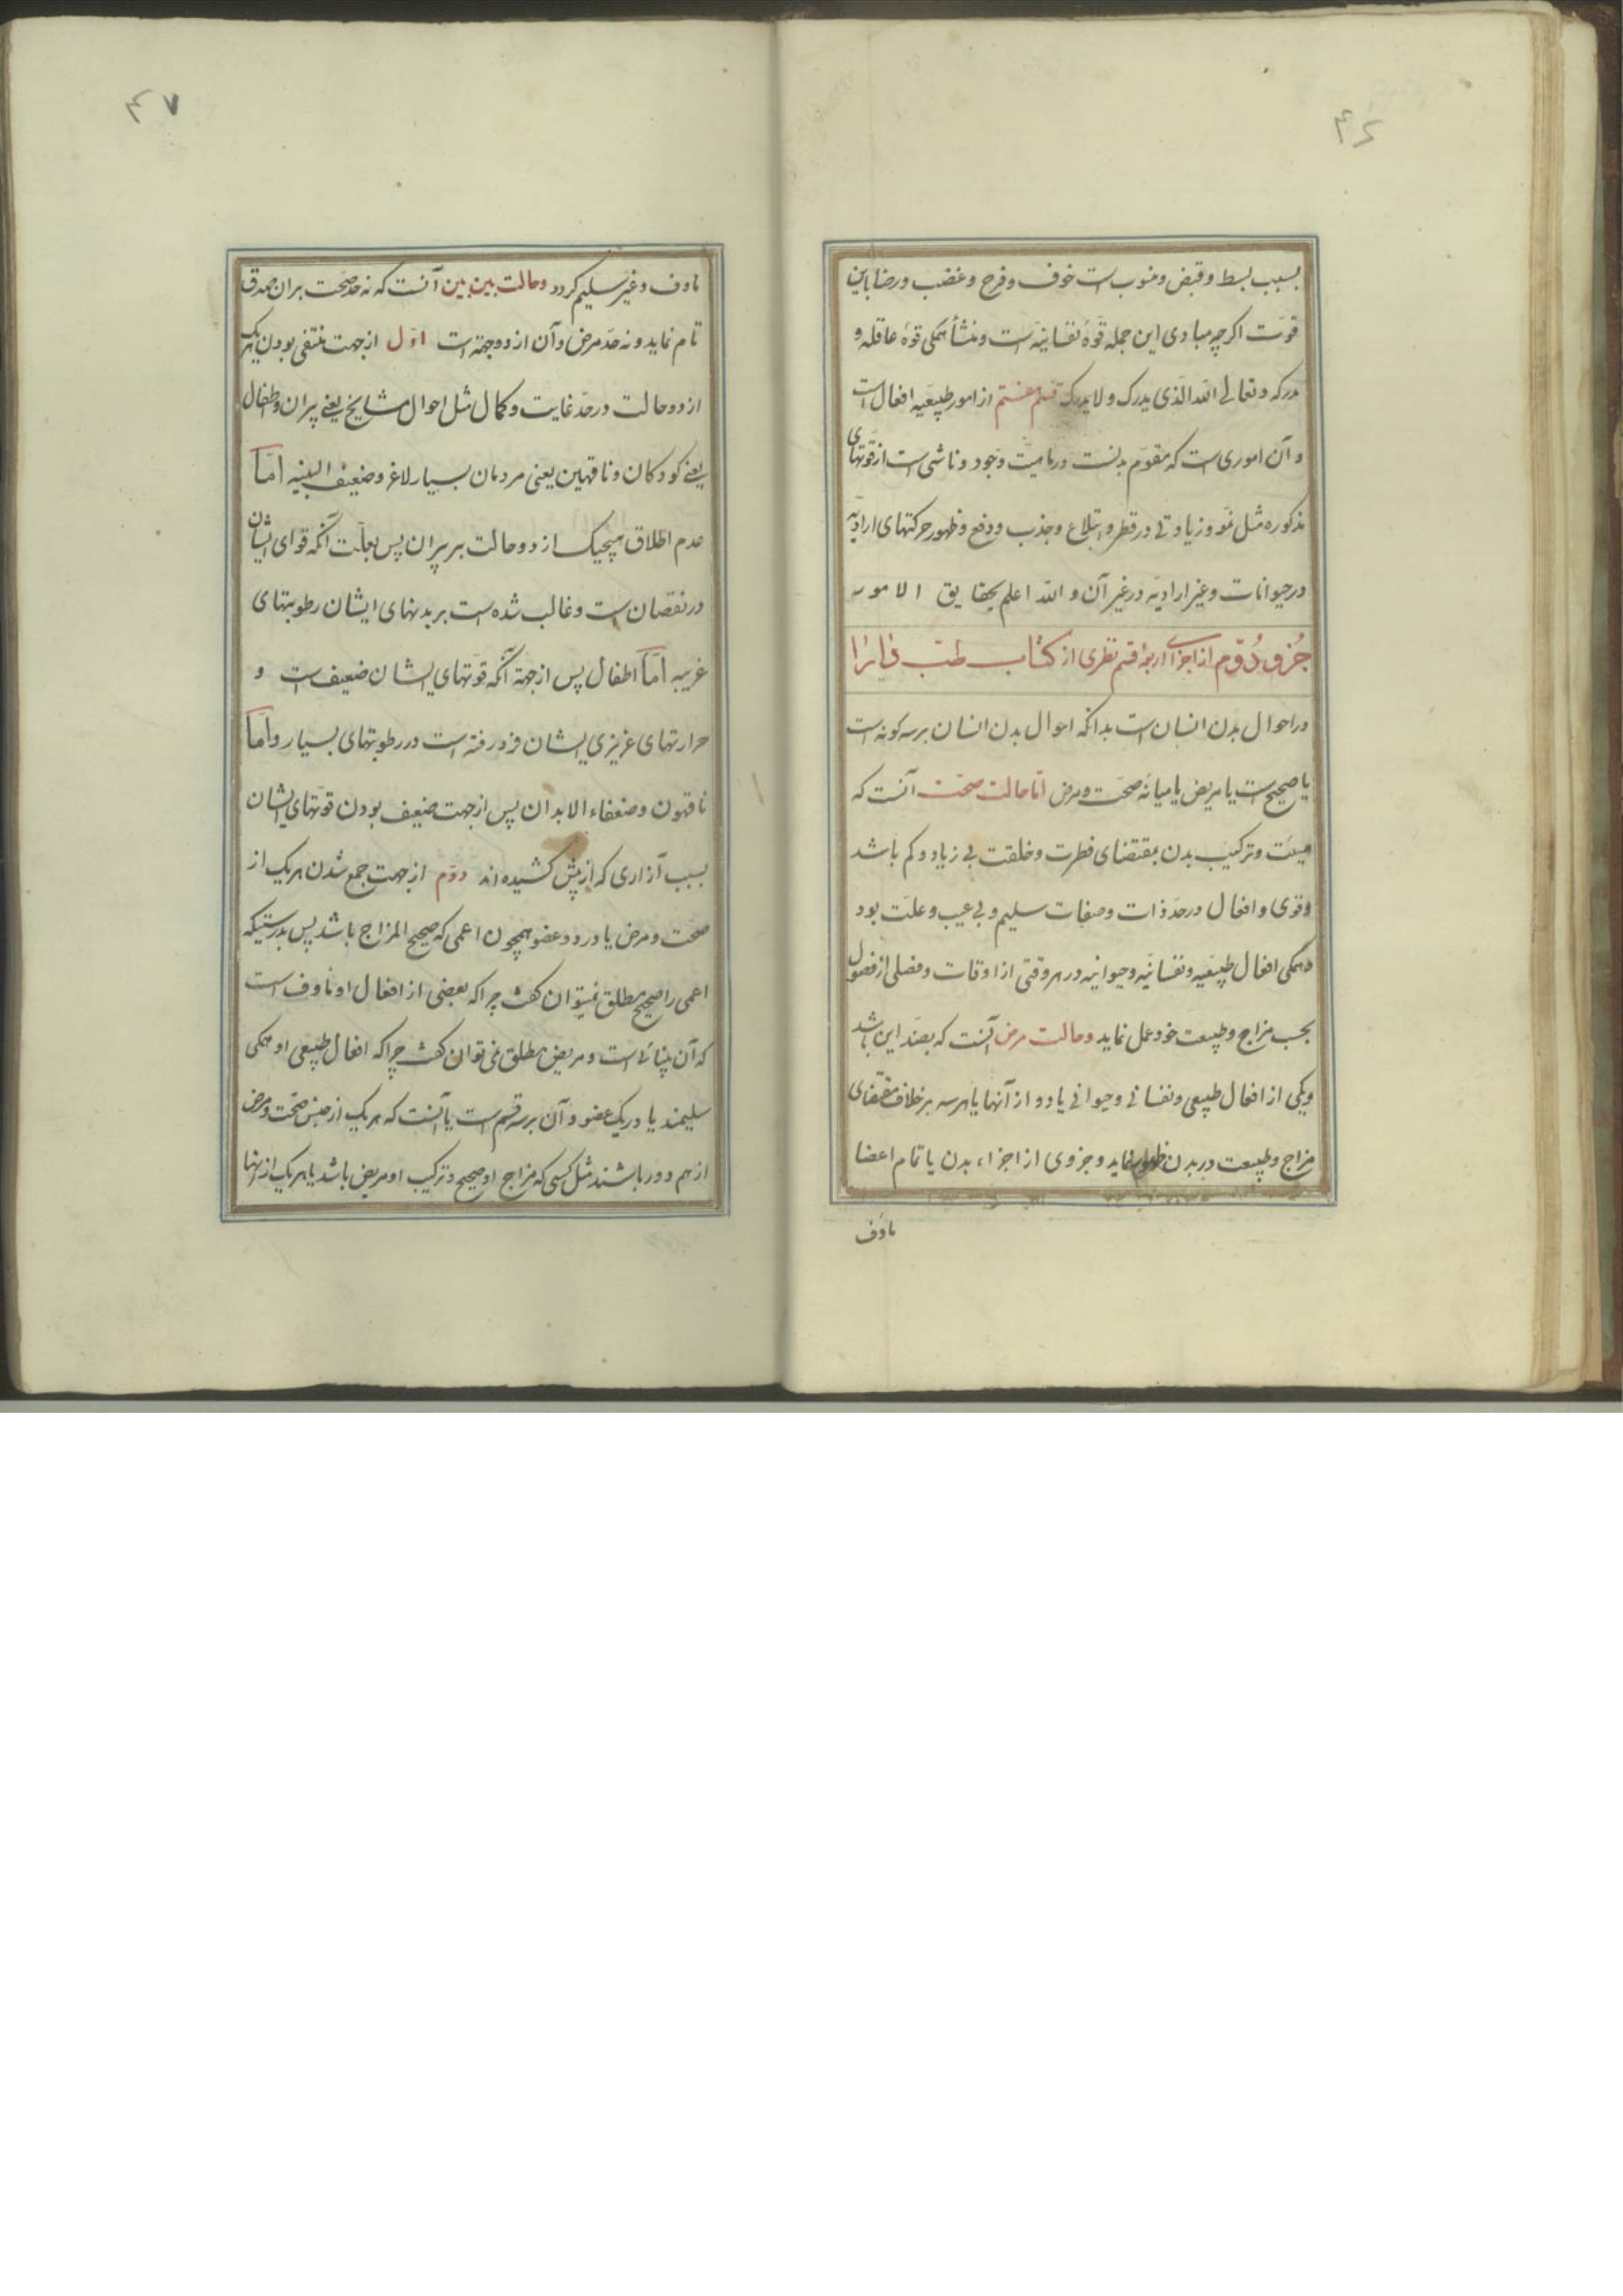 ۴۶
بسبب بسط و قبض و منسوب است خوف و فرح و غضب و رضا باین
قوت اکرچه مبادی این جمله قوهٔ نفسانیه است و منشأ همکی قوهٔ عاقله و
مدرکه و تعالی الله الذی یدرک ولا یدرک قسم هفتم از امور طبیعیه افعال است
و آن اموری است که مقوم بدنست در ماهیت وجود و ناشی است از قوتهای
مذکوره مثل نمو و زیادتی در قطر و ابتلاع و جذب و دفع و ظهور حرکتهای ارادیه
در حیوانات و غیر ارادیه در غیر آن و الله اعلم بحقایق الامور
جزو دوم از اجزای اربعه قسم نظری از کتاب طب
در احوال بدن انسان است بدانکه احوال بدن انسان بر سه کونه است
یا صحیح است یا مریض یا میانهٔ صحت و مرض اما حالت صحت آنست که
هیئت و ترکیب بدن بمقتضای فطرت و خلقت بی زیاد و کم باشد
و قوی و افعال در حد ذات و صفات سلیم و بی عیب و علت بود
و همکی افعال طبیعیه و نفسانیه و حیوانیه در هر وقتی از اوقات و فصلی از فصول
بحسب مزاج و طبیعت خود عمل نماید و حالت مرض آنست که بضد این باشد
و یکی از افعال طبیعی و نفسانی و حیوانی یا دو از آنها یا هر سه بر خلاف مقتضای
مزاج و طبیعت در بدن ظهور نماید و جزوی از اجزاء بدن یا تمام اعضا
ماؤف
۴۷
ماوف و غیر سلیم کردد و حالت بین بین آنست که نه حد صحت بران صدق
تام نماید و نه حد مرض و آن از دو جهة است اول از جهت منتفی بودن هریک
از دو حالت در حد غایت و کمال مثل احوال مشایخ یعنی پیران و اطفال
یعنی کودکان و ناقهین یعنی مردمان بسیار لاغر و ضعیف البنیه اما
عدم اطلاق هیچیک از دو حالت بر پیران پس بعلت آنکه قوای ایشان
در نقصان است و غالب شده است بر بدنهای ایشان رطوبتهای
غریبه اما اطفال پس از جهة آنکه قوتهای ایشان ضعیف است و
حرارتهای غریزی ایشان فرو رفته است در رطوبتهای بسیار و اما
ناقهون و ضعفاء الابدان پس از جهت ضعیف بودن قوتهای ایشان
بسبب آزاری که از پیش کشیده اند دوم از جهت جمع شدن هریک از
صحت و مرض یا در دو عضو همچون اعمی که صحیح المزاج باشد پس بدرستیکه
اعمی را صحیح مطلق نمیتوان کفت چراکه بعضی از افعال او ماوف است
که آن بینائی است و مریض مطلق نمی توان کفت چراکه افعال طبیعی او همکی
سلیمند یا در یک عضو و آن بر سه قسم است یا آنست که هریک از جنس صحت و مرض
از هم دور باشند مثل کسی که مزاج او صحیح و ترکیب او مریض باشد یا هریک از اینها